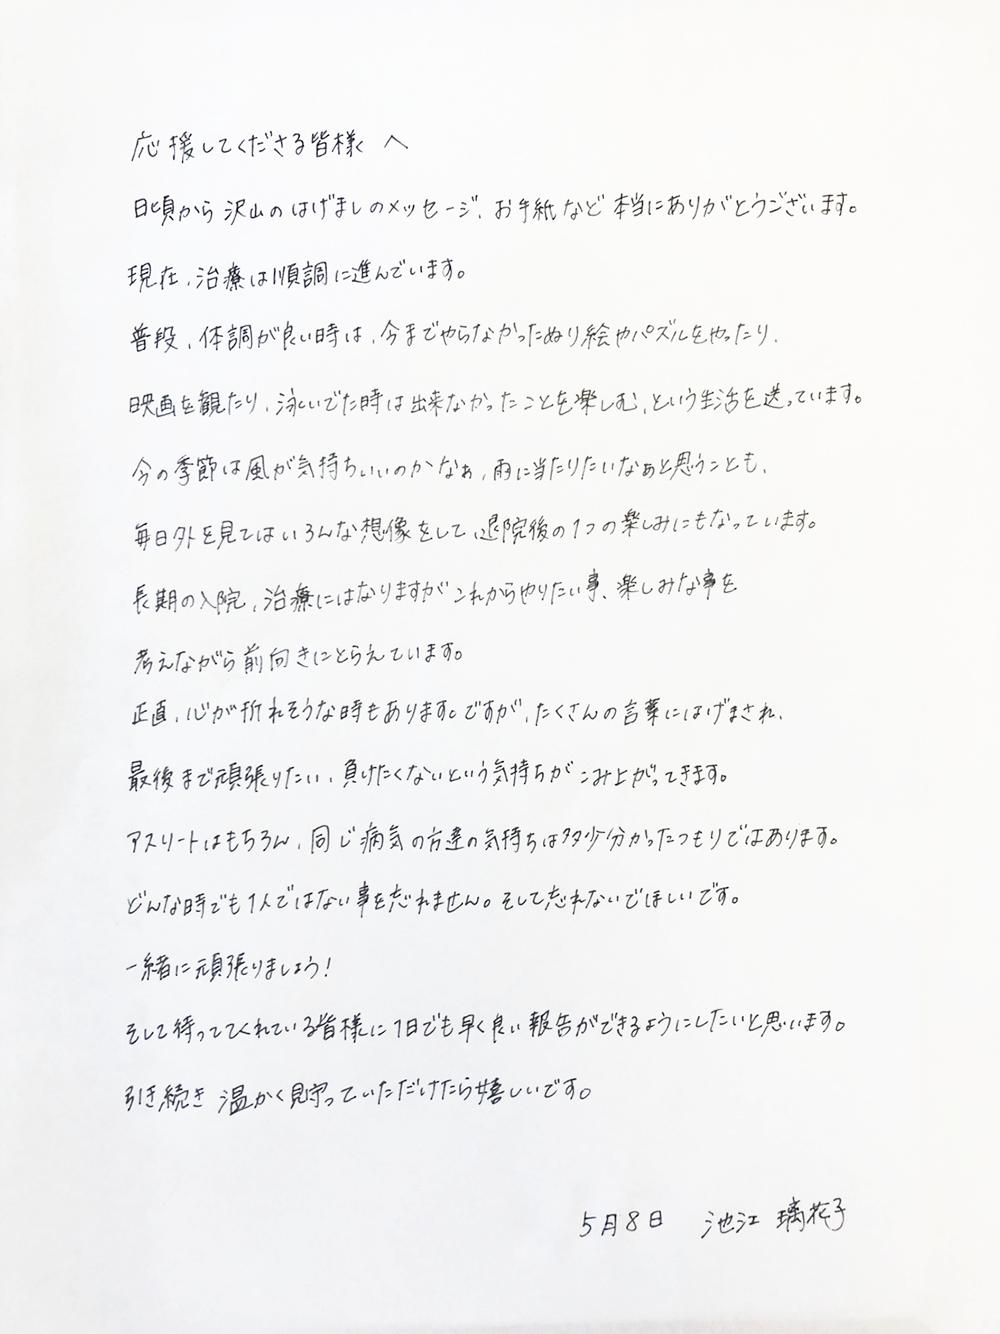 応援してくださる皆様へ
日頃から沢山のはげましのメッセージ、お手紙など本当にありがとうございます。
現在、治療は順調に進んでいます。
普段、体調が良い時は、今までやらなかったぬり絵やパズルをやったり、
映画を観たり、泳いでた時は出来なかったことを楽しむ、という生活を送っています。
今の季節は風が気持ちいいのかなぁ、雨に当たりたいなぁと思うことも、
毎日外を見てはいろんな想像をして、退院後の1つの楽しみにもなっています。
長期の入院、治療にはなりますがこれからやりたい事、楽しみな事を
考えながら前向きにとらえています。
正直、心が折れそうな時もあります。ですが、たくさんの言葉にはげまされ、
最後まで頑張りたい、負けたくないという気持ちがこみ上がってきます。
アスリートはもちろん、同じ病気の方達の気持ちは多少分かったつもりではあります。
どんな時でも1人ではない事を忘れません。そして忘れないでほしいです。
一緒に頑張りましょう!
そして待っててくれている皆様に1日でも早く良い報告ができるようにしたいと思います。
引き続き温かく見守っていただけたら嬉しいです。
5月8日 池江 璃花子